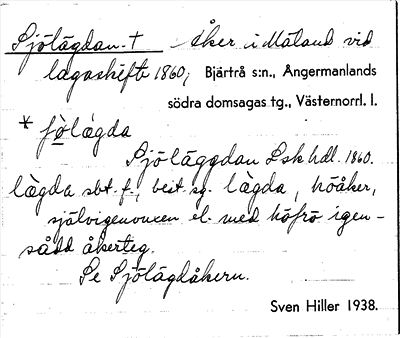 Sjölägdan † åker i Mäland vid
lagaskifte 1860, Bjärtrå s:n., Ångermanlands
södra domsagas tg., Västernorrl. l.
* fjòlægda
Sjöläggdan Lskhdl. 1860.
lægda sbt. f., best. sg. lægda, höåker,
självigenvuxen el. med höfrö igen-
sådd åkerteg.
Se Sjölägdåkern.
Sven Hiller 1938.